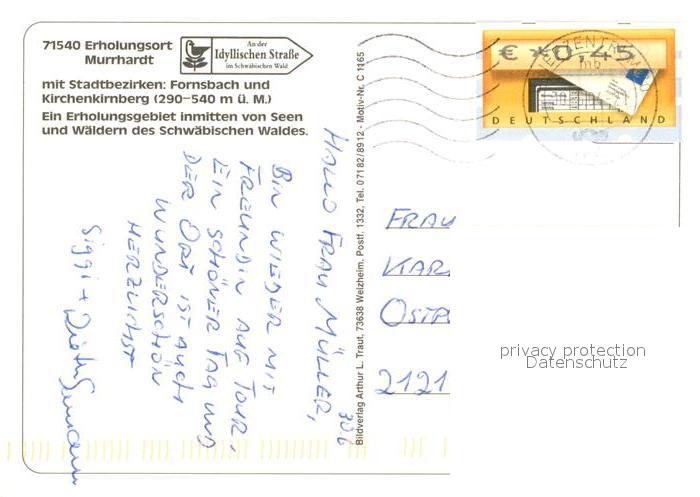 71540 Erholungsort
Murrhardt
An der
Idyllischen Straße
im Schwäbischen Wald
mit Stadtbezirken: Fornsbach und
Kirchenkirnberg (290–540 m ü. M.)
Ein Erholungsgebiet inmitten von Seen
und Wäldern des Schwäbischen Waldes.
HALLO FRAU MÜLLER,
BIN WIEDER MIT
FREUNDIN AUF TOUR,
EIN SCHÖNER TAG UND
DER ORT IST AUCH
WUNDERSCHÖN
HERZLICHST
Siggi +
Bildverlag Arthur L. Traut, 73638 Welzheim, Postf. 1332, Tel. 07182/8912 - Motiv-Nr. C 1165
€ *0,45
DEUTSCHLAND
BRIEFZENTRUM
FRAU
KAR
OSTP
2121
privacy protection
Datenschutz